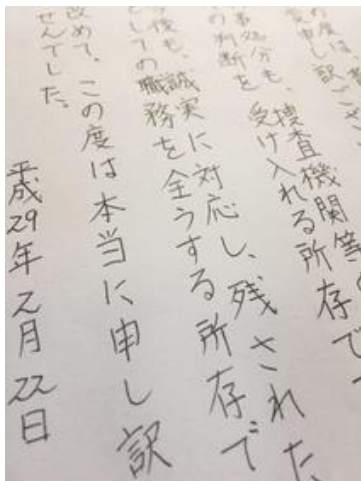 の度は、
変申し訳ござ
事処分も、捜査機関等の
の判断を受け入れる所存で
後も、誠実に対応し、残された
としての職務を全うする所存で
改めて、この度は本当に申し訳
せんでした。
平成29年2月22日